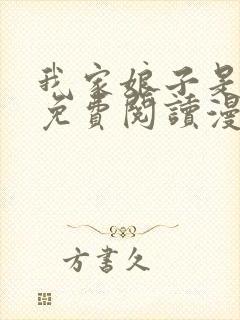 我家娘子是
免費閱讀漫
方書久